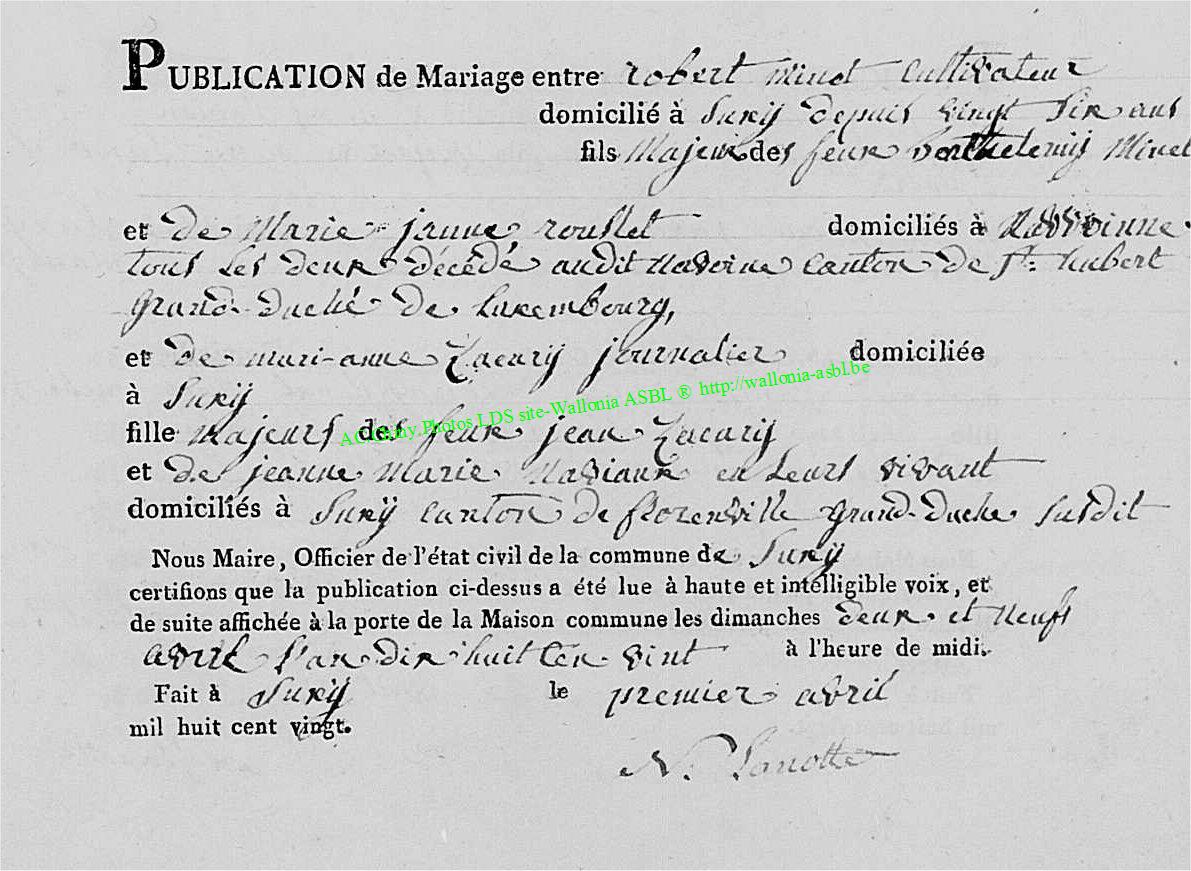 PUBLICATION de Mariage entre robert minet Cultivateur
domicilié à Sury depuis vingt Six ans
fils Majeur des feux berthelemÿ Minet
et de Marie jeanne rousset domiciliés à
tous Les deux décédé audit canton de St. hubert
grand-duché de Luxembourg,
et de mari-anne Zacarÿ journalier domiciliée
à Surÿ
ACAdmy.Photos LDS site-Wallonia ASBL ® http://wallonia-asbl.be
fille majeurs des feux jean Zacarÿ
et de jeanne Marie en Leurs vivant
domiciliés à Surÿ Canton de florenville grand-duche Susdit
Nous Maire, Officier de l'état civil de la commune de Surÿ
certifions que la publication ci-dessus a été lue à haute et intelligible voix, et
de suite affichée à la porte de la Maison commune les dimanches deux et neuf
avril l'an dix huit Cen vint à l'heure de midi.
Fait à Surÿ le premier avril
mil huit cent vingt.
N. Lanotte